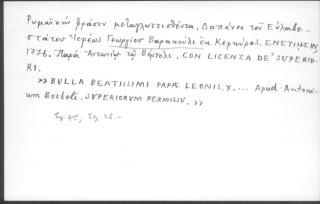 Ρωμαϊκὴν φράσιν μεταγλωττισθέντα. Δαπάνῃ τοῦ Εὐλαβε-
στάτου Ἱερέως Γεωργίου Βαρακούλι ἐκ Κερκύρας. ΕΝΕΤΙΗΣΙΝ,
1776. Παρὰ Ἀντωνίῳ τῷ Βόρτολι. CON LICENZA DE' SUPERIO-
RI.
»» BULLA BEATISSIMI PAPÆ LEONIS. X. ... Apud Antoni-
um Bortoli. SUPERIORUM PERMISSU. »»
Σχ. 4ον, Σελ. 32.-